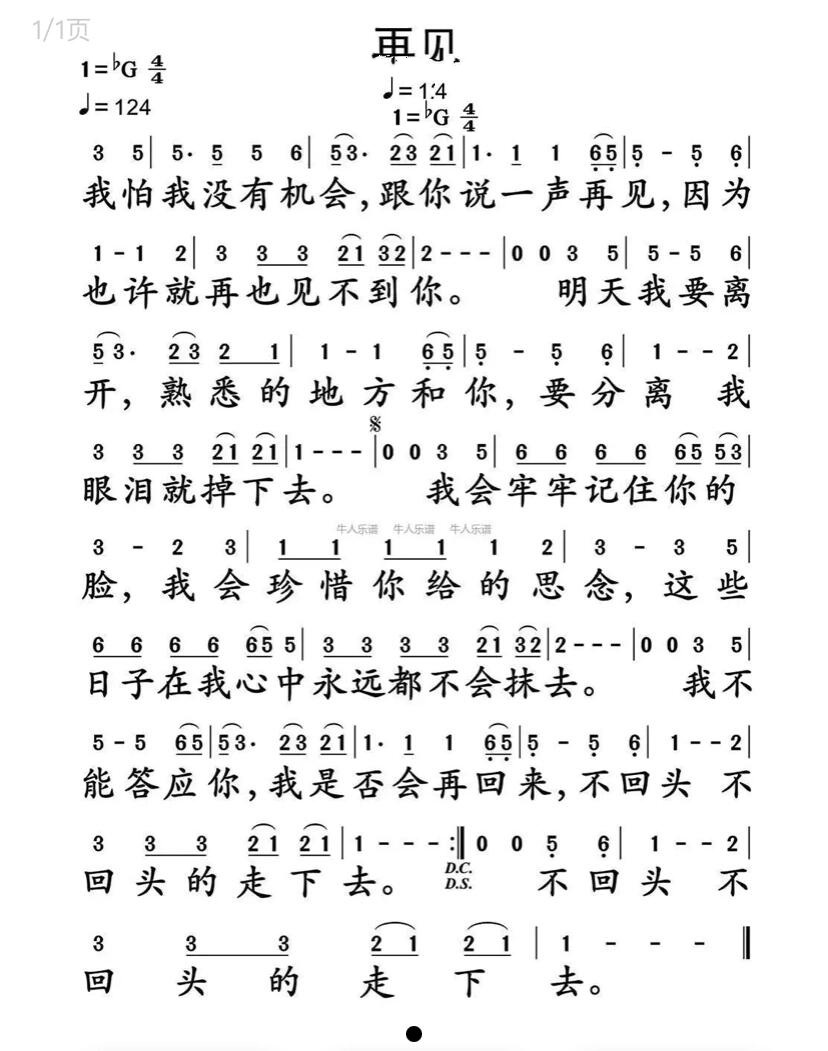 1/1页
再见
1=♭G 4/4
♩=124
1=♭G 4/4
3 5| 5· 5 5 6| 53· 23 21|1· 1 1 65|5 - 5 6|
我怕我没有机会,跟你说一声再见,因为
1 - 1 2| 3 3 3 21 32|2 - - -|0 0 3 5| 5 - 5 6|
也许就再也见不到你。 明天我要离
53· 23 2 1| 1 - 1 65|5 - 5 6| 1 - - 2|
开,熟悉的地方和你,要分离 我
𝄋
3 3 3 21 21|1 - - -|0 0 3 5| 6 6 6 6 65 53|
眼泪就掉下去。 我会牢牢记住你的
牛人乐谱 牛人乐谱 牛人乐谱
3 - 2 3| 1 1 1 1 1 2| 3 - 3 5|
脸,我会珍惜你给的思念,这些
6 6 6 6 65 5| 3 3 3 3 21 32|2 - - -|0 0 3 5|
日子在我心中永远都不会抹去。 我不
5 - 5 65|53· 23 21|1· 1 1 65|5 - 5 6| 1 - - 2|
能答应你,我是否会再回来,不回头 不
3 3 3 21 21|1 - - - :‖ 0 0 5 6| 1 - - 2|
回头的走下去。 D.C. D.S. 不回头 不
3 3 3 21 21 | 1 - - - ‖
回头的走下去。